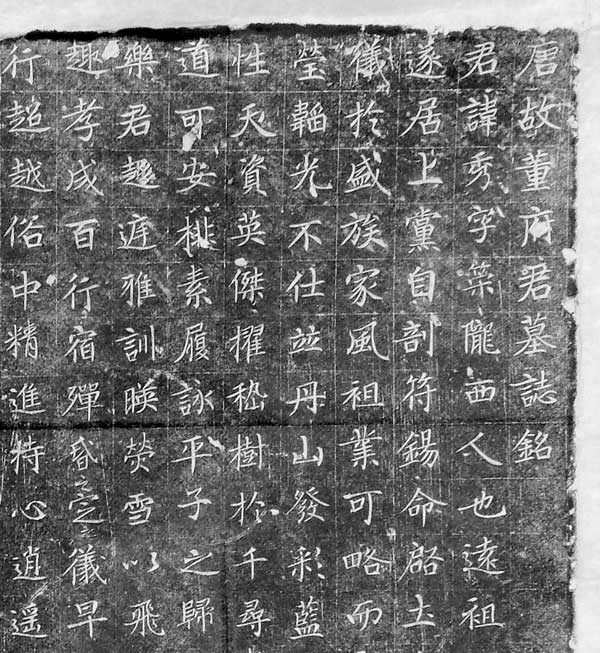 唐故董府君墓誌銘
君諱秀字榮隴西人也遠祖
遂居上黨自剖符錫命啓土
儀於盛族家風祖業可略而
瑩韜光不仕並丹山發彩藍
性天資英傑擢嵇樹於千尋
道可安排素履詠平子之歸
樂君趨庭雅訓暎熒雪以飛
趣孝成百行宿殫昏定儀早
行超越俗中精進持心逍遥